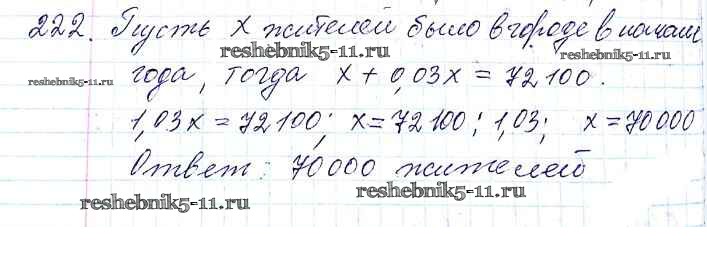 222. Пусть х жителей было в городе в начале
reshebnik5-11.ru
reshebnik5-11.ru
года, тогда х + 0,03х = 72 100.
reshebnik5-11.ru
reshebnik5-11.ru
1,03х = 72100; х = 72100 : 1,03; х = 70000
Ответ: 70000 жителей
reshebnik5-11.ru
reshebnik5-11.ru